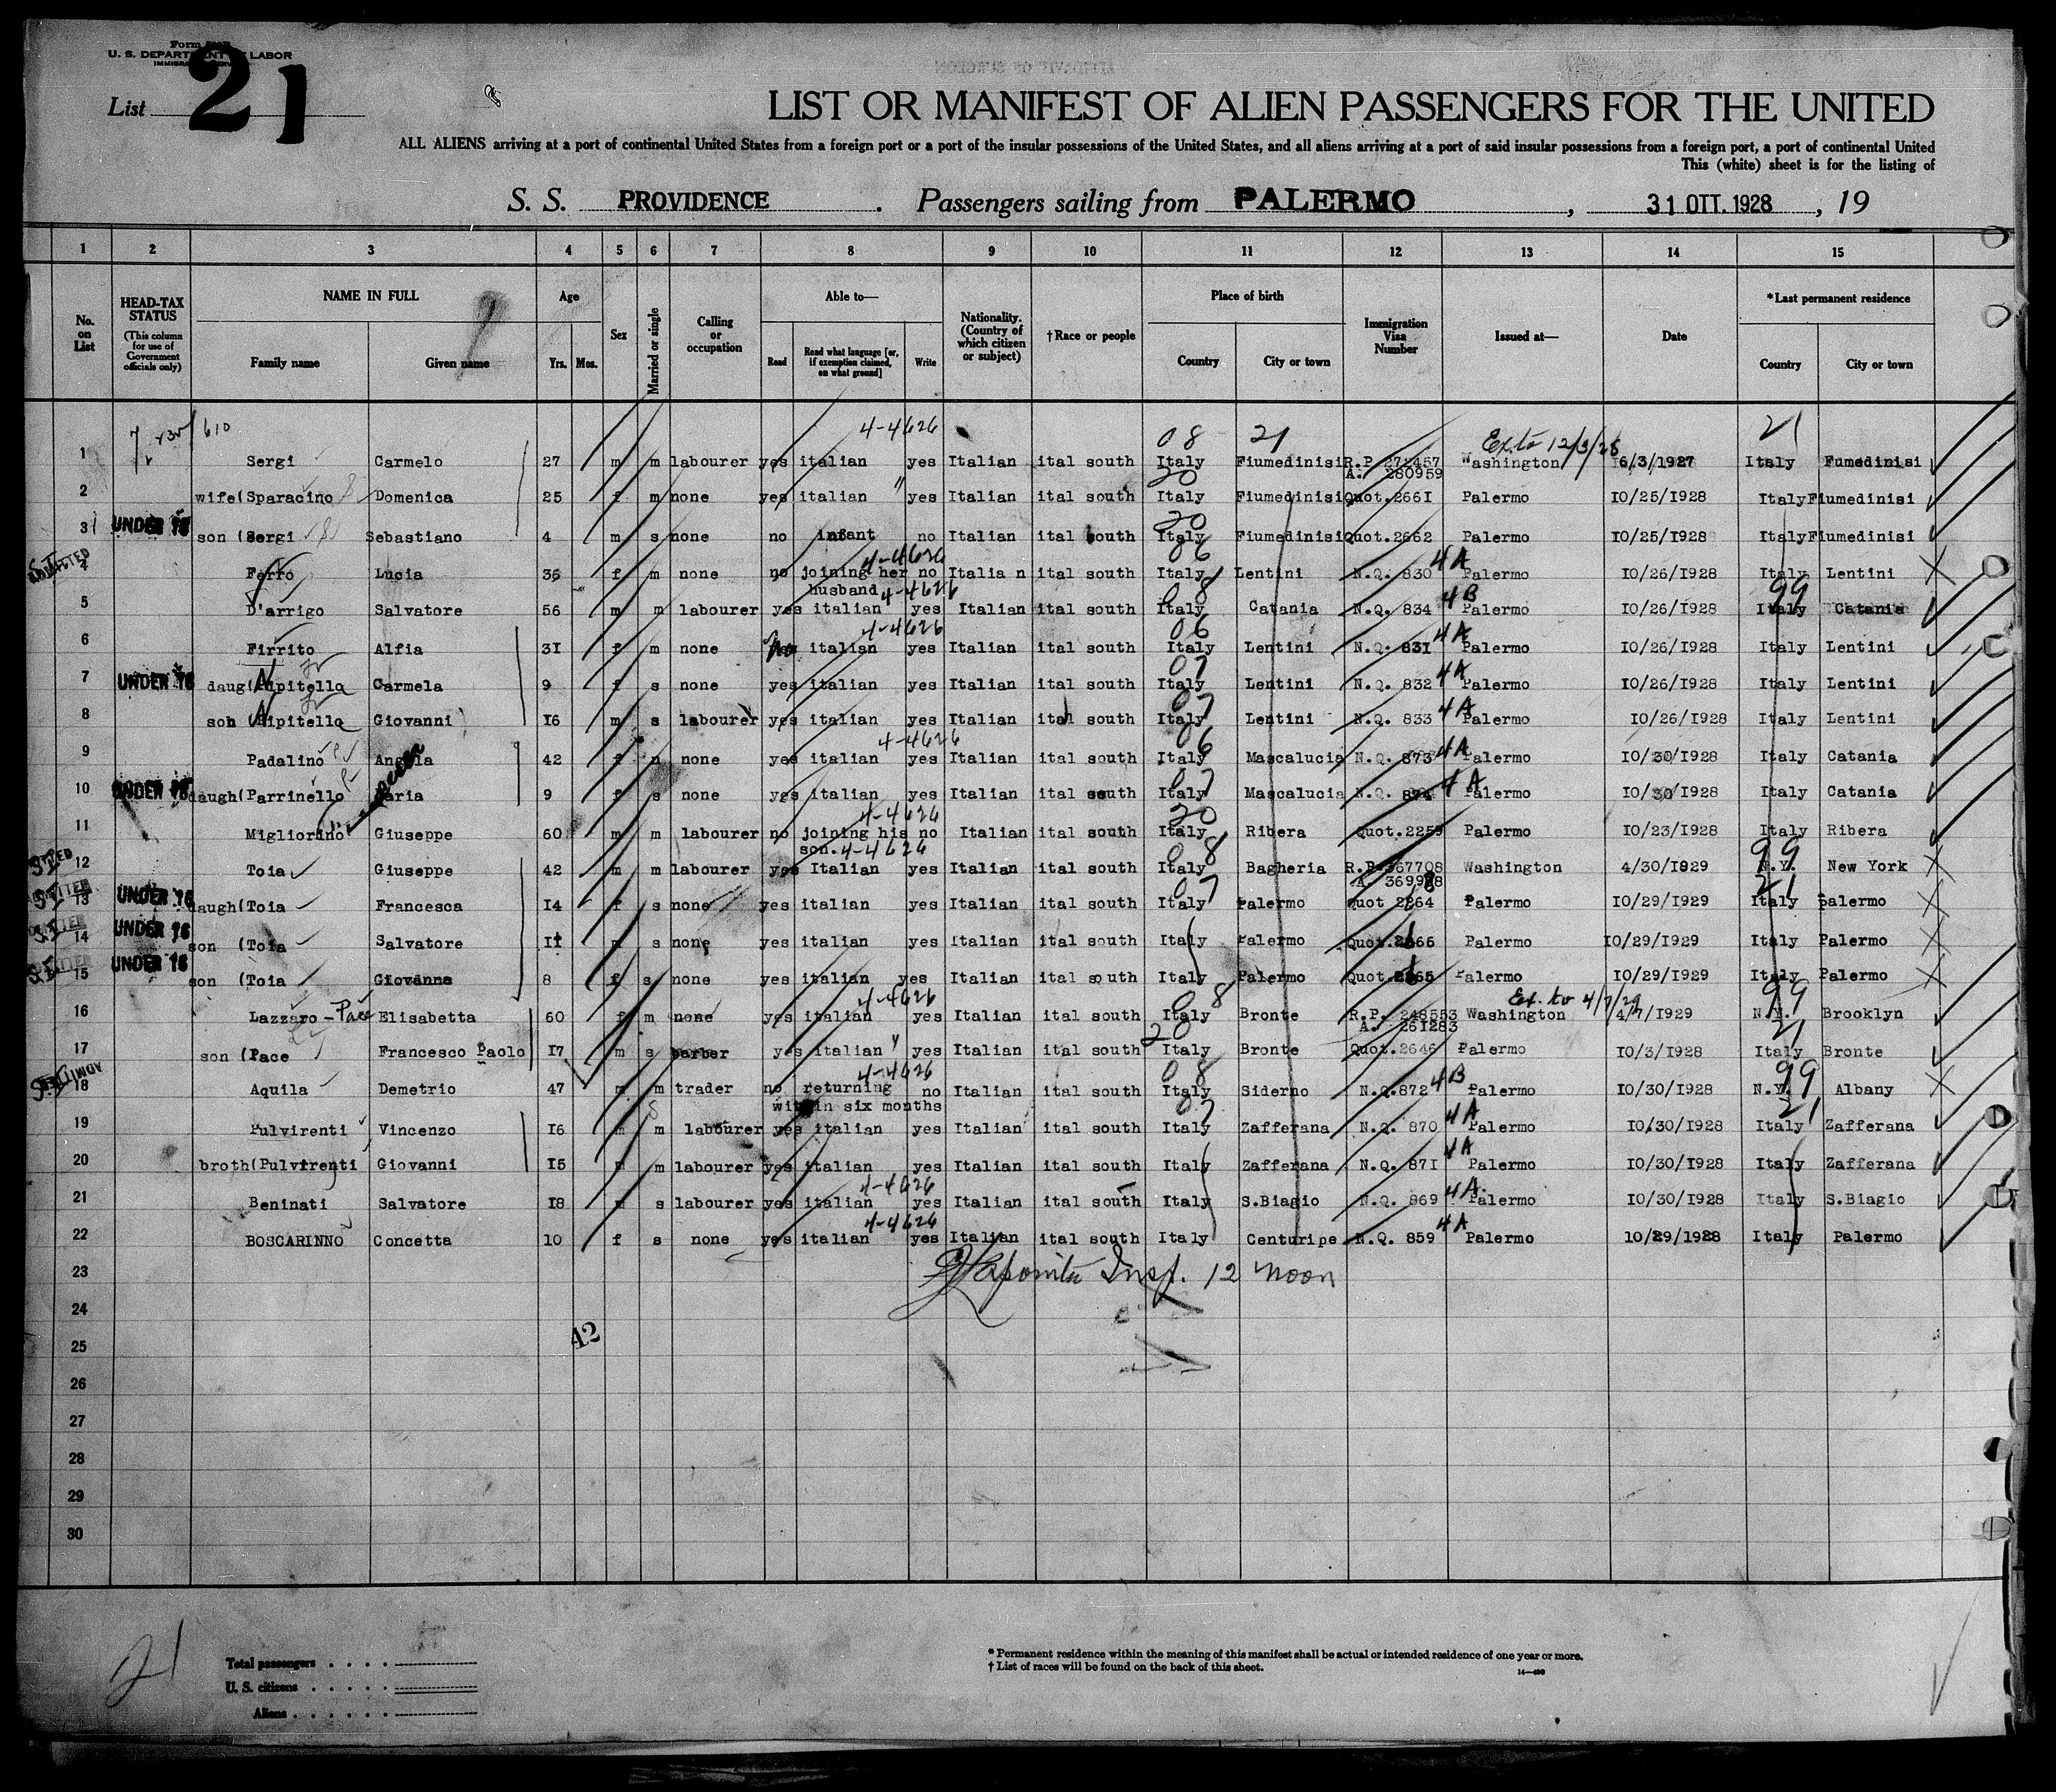 Form
U. S. DEPARTMENT OF LABOR
List 21
LIST OR MANIFEST OF ALIEN PASSENGERS FOR THE UNITED
ALL ALIENS arriving at a port of continental United States from a foreign port or a port of the insular possessions of the United States, and all aliens arriving at a port of said insular possessions from a foreign port, a port of continental United
This (white) sheet is for the listing of
S. S. PROVIDENCE . Passengers sailing from PALERMO , 31 OTT. 1928 , 19
1 2 3 4 5 6 7 8 9 10 11 12 13 14 15
No. on List
HEAD-TAX STATUS (This column for use of Government officials only)
NAME IN FULL Family name Given name
Age Yrs. Mos.
Sex
Married or single
Calling or occupation
Able to— Read Read what language [or, if exemption claimed, on what ground] Write
Nationality. (Country of which citizen or subject)
†Race or people
Place of birth Country City or town
Immigration Visa Number
Issued at—
Date
*Last permanent residence Country City or town
610 4-4626 08 21 Ex.to 12/3/28 21
1 Sergi Carmelo 27 m m labourer yes italian yes Italian ital south Italy Fiumedinisi R.P. 272457 Washington 6/3/1927 Italy Fumedinisi
A. 280959
20
2 wife(Sparacino Domenica 25 f m none yes italian " yes Italian ital south Italy Fiumedinisi Quot.2661 Palermo 10/25/1928 Italy Fiumedinisi
20
3 UNDER 16 son (Sergi Sebastiano 4 m s none no infant no Italian ital south Italy Fiumedinisi Quot.2662 Palermo 10/25/1928 Italy Fiumedinisi
S.I. ADMITTED 4-4626 06 4A
4 Ferro Lucia 36 f m none no joining her no Italia n ital south Italy Lentini N.Q. 830 Palermo 10/26/1928 Italy Lentini
husband 4-4626 08 4B 99
5 D'arrigo Salvatore 56 m m labourer yes italian yes Italian ital south Italy Catania N.Q. 834 Palermo 10/26/1928 Italy Catania
4-4626 06 4A
6 Firrito Alfia 31 f m none italian yes Italian ital south Italy Lentini N.Q. 831 Palermo 10/26/1928 Italy Lentini
07 4A
7 UNDER 16 daug(Nipitella Carmela 9 f s none yes italian yes Italian ital south Italy Lentini N.Q. 832 Palermo 10/26/1928 Italy Lentini
07 4A
8 son (Nipitella Giovanni 16 m s labourer yes italian yes Italian ital south Italy Lentini N.Q. 833 Palermo 10/26/1928 Italy Lentini
4-4626 06 4A
9 Padalino Angela 42 f m none yes italian yes Italian ital south Italy Mascalucia N.Q. 873 Palermo 10/30/1928 Italy Catania
07 4A
10 UNDER 16 daugh(Parrinello Maria 9 f s none yes italian yes Italian ital south Italy Mascalucia N.Q. 874 Palermo 10/30/1928 Italy Catania
4-4626 20
11 Migliorino Giuseppe 60 m m labourer no joining his no Italian ital south Italy Ribera Quot.2259 Palermo 10/23/1928 Italy Ribera
son. 4-4626 08 99
12 S.I. Toia Giuseppe 42 m m labourer yes Italian yes Italian ital south Italy Bagheria R.P.367708 Washington 4/30/1929 N.Y. New York
A. 369988
07 21
13 S.I. UNDER 16 daugh(Toia Francesca 14 f s none yes italian yes Italian ital south Italy Palermo Quot 2264 Palermo 10/29/1929 Italy Palermo
14 S.I. UNDER 16 son (Toia Salvatore 11 m s none yes italian yes Italian ital south Italy Palermo Quot.2666 Palermo 10/29/1929 Italy Palermo
15 S.I. UNDER 16 son (Toia Giovanna 8 f s none yes italian yes Italian ital south Italy Palermo Quot.2265 Palermo 10/29/1929 Italy Palermo
4-4626 08 Ext. to 4/7/29 99
16 Lazzaro - Pace Elisabetta 60 f m none yes italian yes Italian ital south Italy Bronte R.P. 248553 Washington 4/7/1929 N.Y. Brooklyn
A. 261283
20 21
17 son (Pace Francesco Paolo 17 m s barber yes italian " yes Italian ital south Italy Bronte Quot.2646 Palermo 10/3/1928 Italy Bronte
ADMITTED S.I. 4-4626 08 4B 99
18 Aquila Demetrio 47 m m trader no returning no Italian ital south Italy Siderno N.Q.872 Palermo 10/30/1928 N.Y. Albany
within six months
S 07 4A 21
19 Pulvirenti Vincenzo 16 m m labourer yes italian yes Italian ital south Italy Zafferana N.Q. 870 Palermo 10/30/1928 Italy Zafferana
4A
20 broth(Pulvirenti Giovanni 15 m m labourer yes italian yes Italian ital south Italy Zafferana N.Q. 871 Palermo 10/30/1928 Italy Zafferana
4-4626 4A
21 Beninati Salvatore 18 m s labourer yes italian yes Italian ital south Italy S.Biagio N.Q. 869 Palermo 10/30/1928 Italy S.Biagio
4-4626 4A
22 BOSCARINNO Concetta 10 f s none yes italian yes Italian ital south Italy Centuripe N.Q. 859 Palermo 10/29/1928 Italy Palermo
23 Insp. 12 noon
24
25 42
26
27
28
29
30
21
Total passengers . . . .
U. S. citizens . . . . .
Aliens . . . . . .
* Permanent residence within the meaning of this manifest shall be actual or intended residence of one year or more.
† List of races will be found on the back of this sheet. 14—490